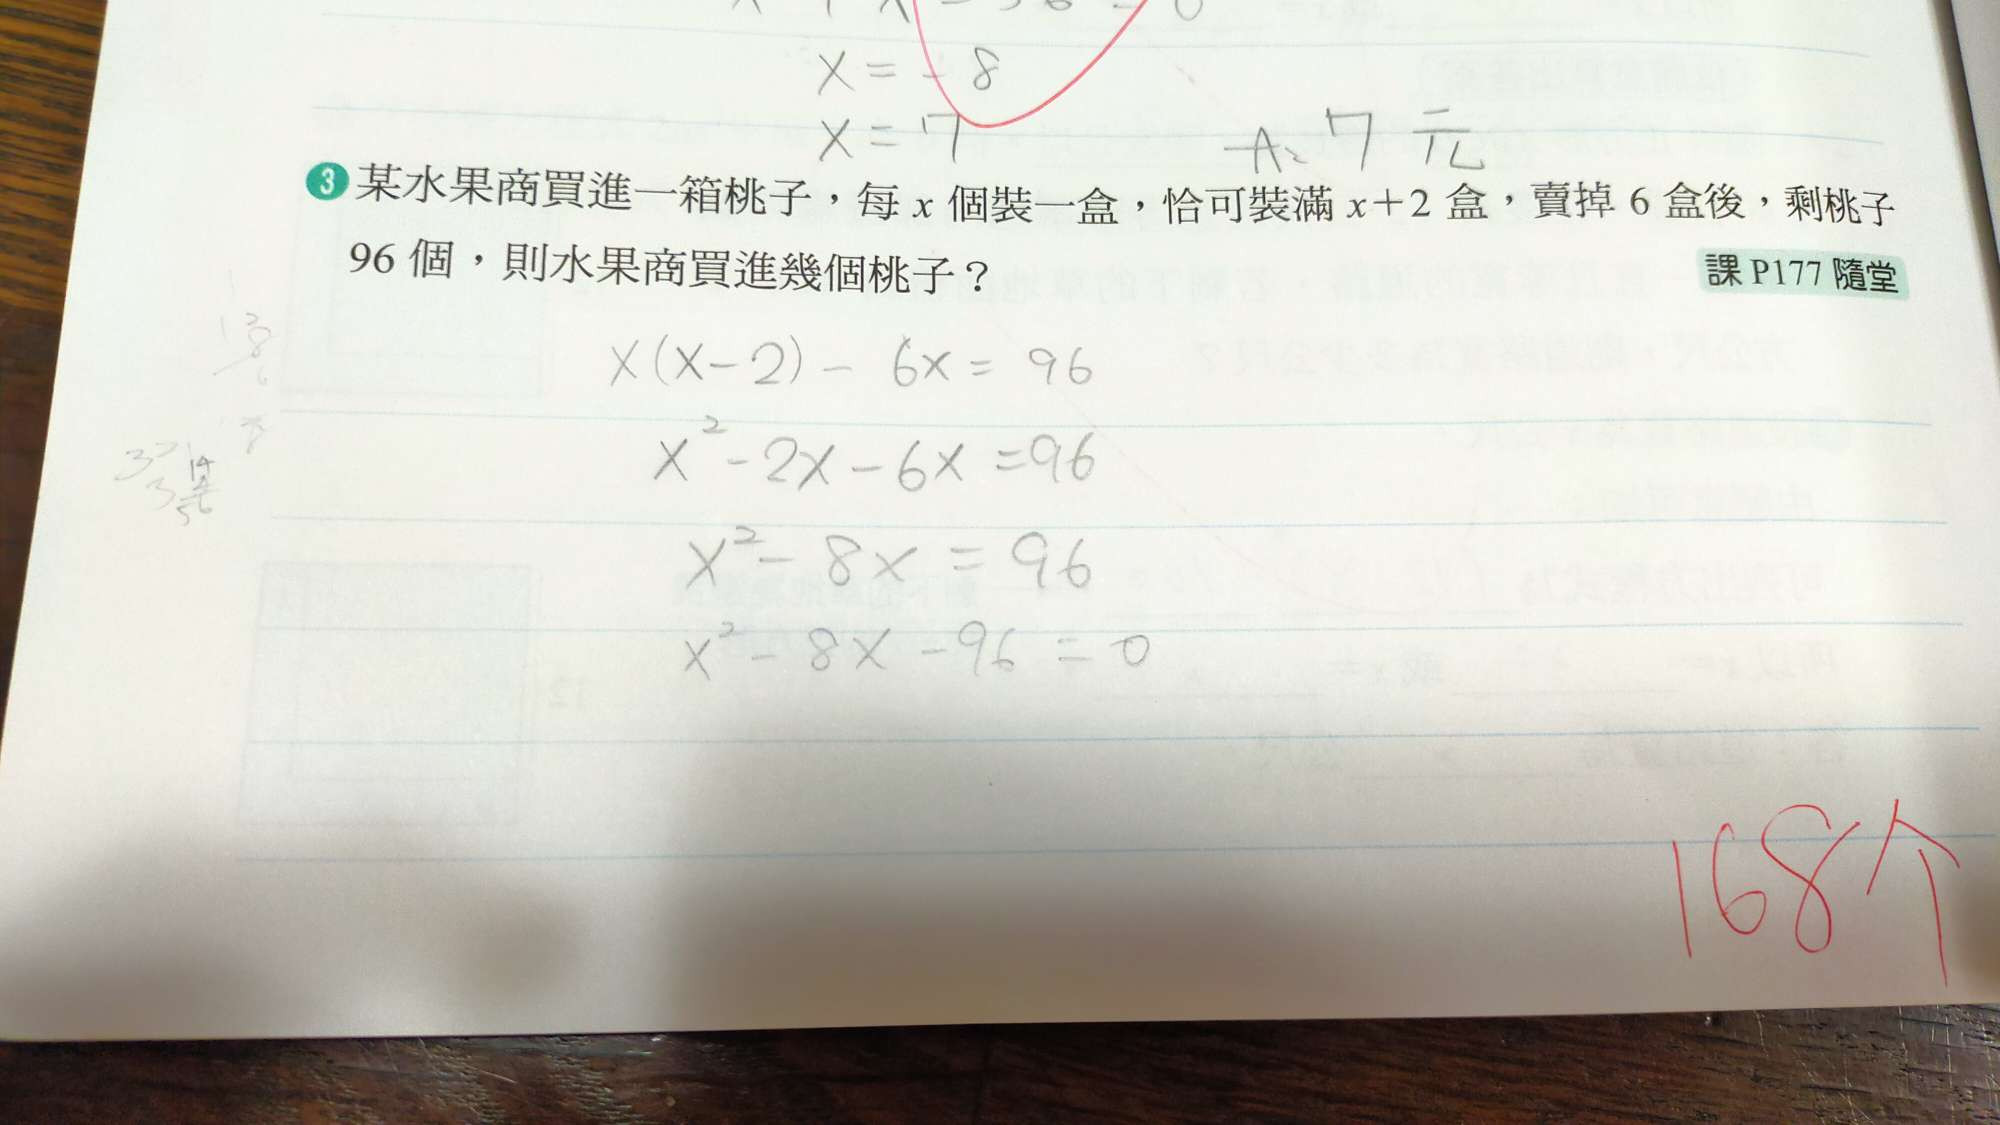 x = -8
x = 7
A: 7 元
3 某水果商買進一箱桃子，每 x 個裝一盒，恰可裝滿 x+2 盒，賣掉 6 盒後，剩桃子
96 個，則水果商買進幾個桃子？
課 P177 隨堂
x(x-2) - 6x = 96
x² - 2x - 6x = 96
x² - 8x = 96
x² - 8x - 96 = 0
168个